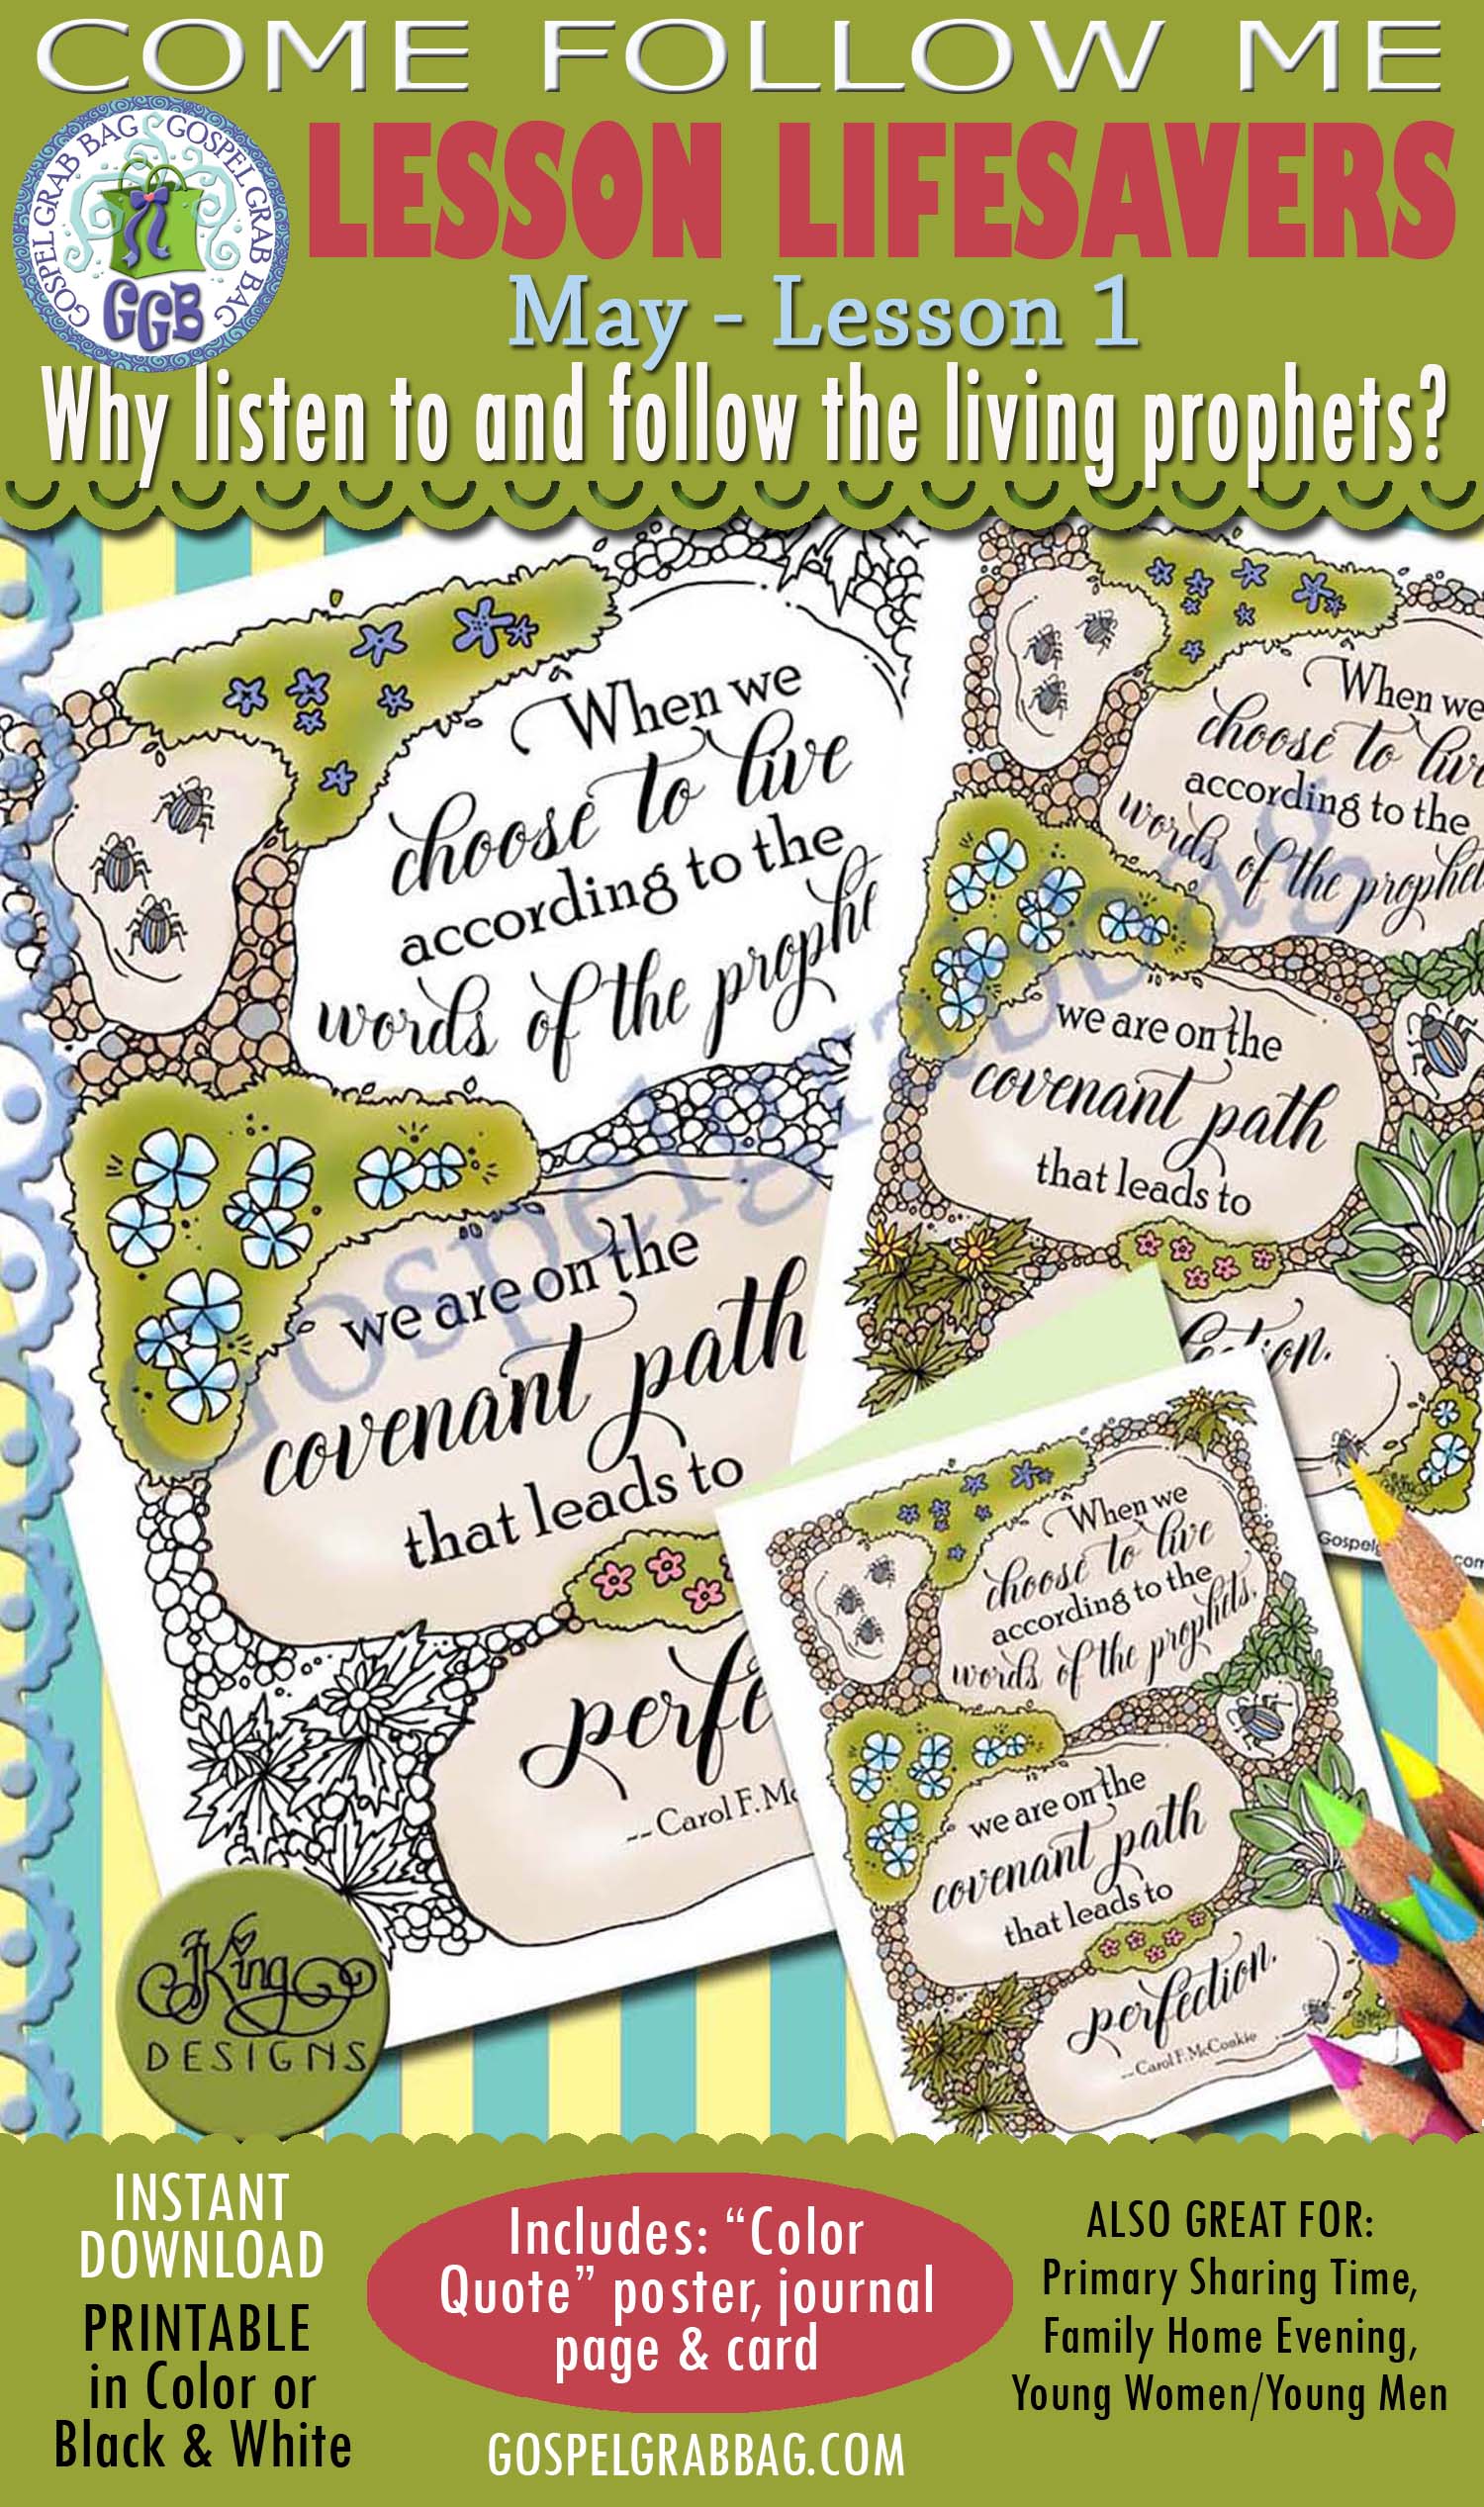 COME FOLLOW ME
GOSPEL GRAB BAG GOSPEL GRAB BAG
GGB
LESSON LIFESAVERS
May - Lesson 1
Why listen to and follow the living prophets?
When we
choose to live
according to the
words of the prophe
we are on the
covenant path
that leads to
perfe
-- Carol F. Mc
When we
choose to liv
according to the
words of the prophet
we are on the
covenant path
that leads to
ction.
Gospelg
com
When we
choose to live
according to the
words of the prophets,
we are on the
covenant path
that leads to
perfection.
-- Carol F. McConkie
Gospelgrabbag
JKing
DESIGNS
INSTANT
DOWNLOAD
PRINTABLE
in Color or
Black & White
Includes: “Color
Quote” poster, journal
page & card
GOSPELGRABBAG.COM
ALSO GREAT FOR:
Primary Sharing Time,
Family Home Evening,
Young Women/Young Men